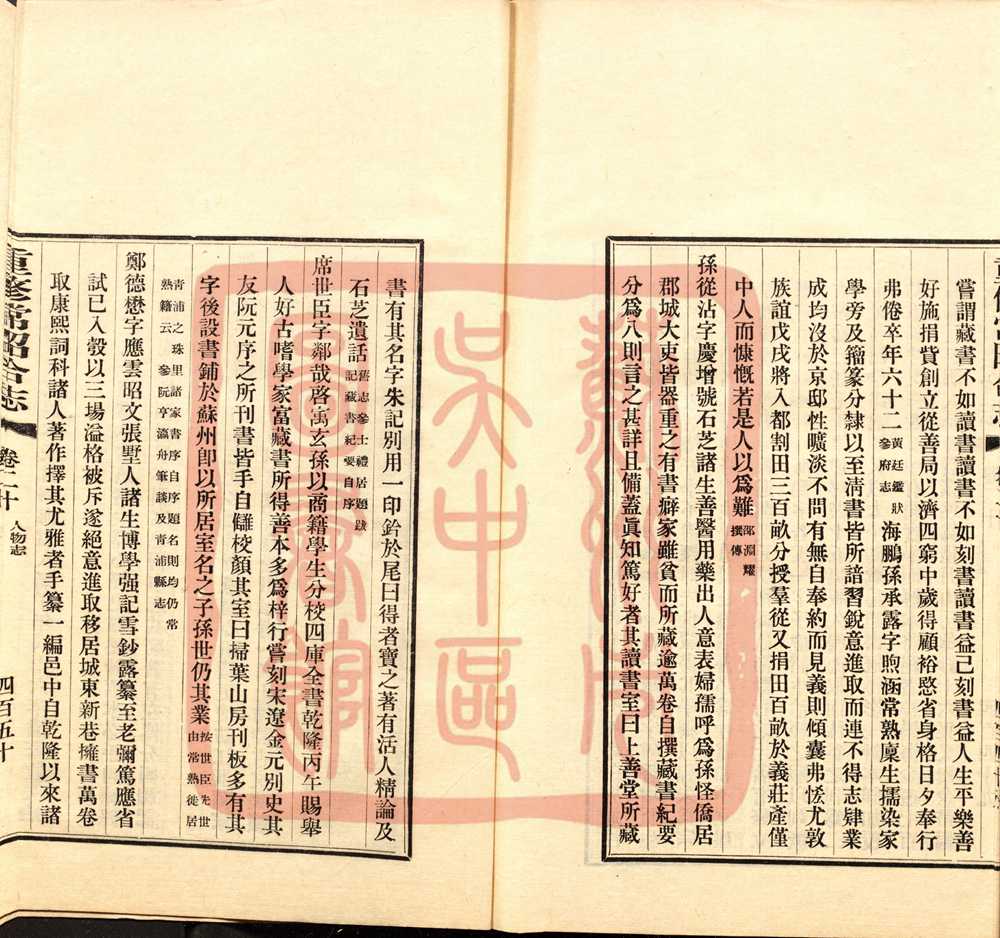 嘗謂藏書不如讀書讀書不如刻書讀書益己刻書益人生平樂善
好施捐貲創立從善局以濟四窮中歲得顧裕愍省身格日夕奉行
弗倦卒年六十二黃廷鑑狀參府志海鵬孫承露字煦涵常熟廩生擩染家
學旁及籀篆分隸以至淸書皆所諳習銳意進取而連不得志肄業
成均沒於京邸性曠淡不問有無自奉約而見義則傾囊弗恡尤敦
族誼戊戌將入都割田三百畝分授羣從又捐田百畝於義莊產僅
中人而慷慨若是人以爲難邵淵耀撰傳
孫從沾字慶增號石芝諸生善醫用藥出人意表婦孺呼爲孫怪僑居
郡城大吏皆器重之有書癖家雖貧而所藏逾萬卷自撰藏書紀要
分爲八則言之甚詳且備蓋眞知篤好者其讀書室曰上善堂所藏
書有其名字朱記別用一印鈐於尾曰得者寶之著有活人精論及
石芝遺話舊志參士禮居題跋記藏書紀要自序
席世臣字鄰哉啓寓玄孫以商籍學生分校四庫全書乾隆丙午賜舉
人好古嗜學家富藏書所得善本多爲梓行嘗刻宋遼金元別史其
友阮元序之所刊書皆手自讎校顏其室曰掃葉山房刊板多有其
字後設書鋪於蘇州卽以所居室名之子孫世仍其業按世臣先世由常熟徙居
靑浦之珠里諸家書序自序題名則均仍常熟籍云參阮亨瀛舟筆談及靑浦縣志
鄭德懋字應雲昭文張墅人諸生博學强記雪鈔露纂至老彌篤應省
試已入彀以三場溢格被斥遂絕意進取移居城東新巷擁書萬卷
取康熙詞科諸人著作擇其尤雅者手纂一編邑中自乾隆以來諸
重修常昭合志
卷二十
人物志
四百五十
蘇州市吳中區圖書館